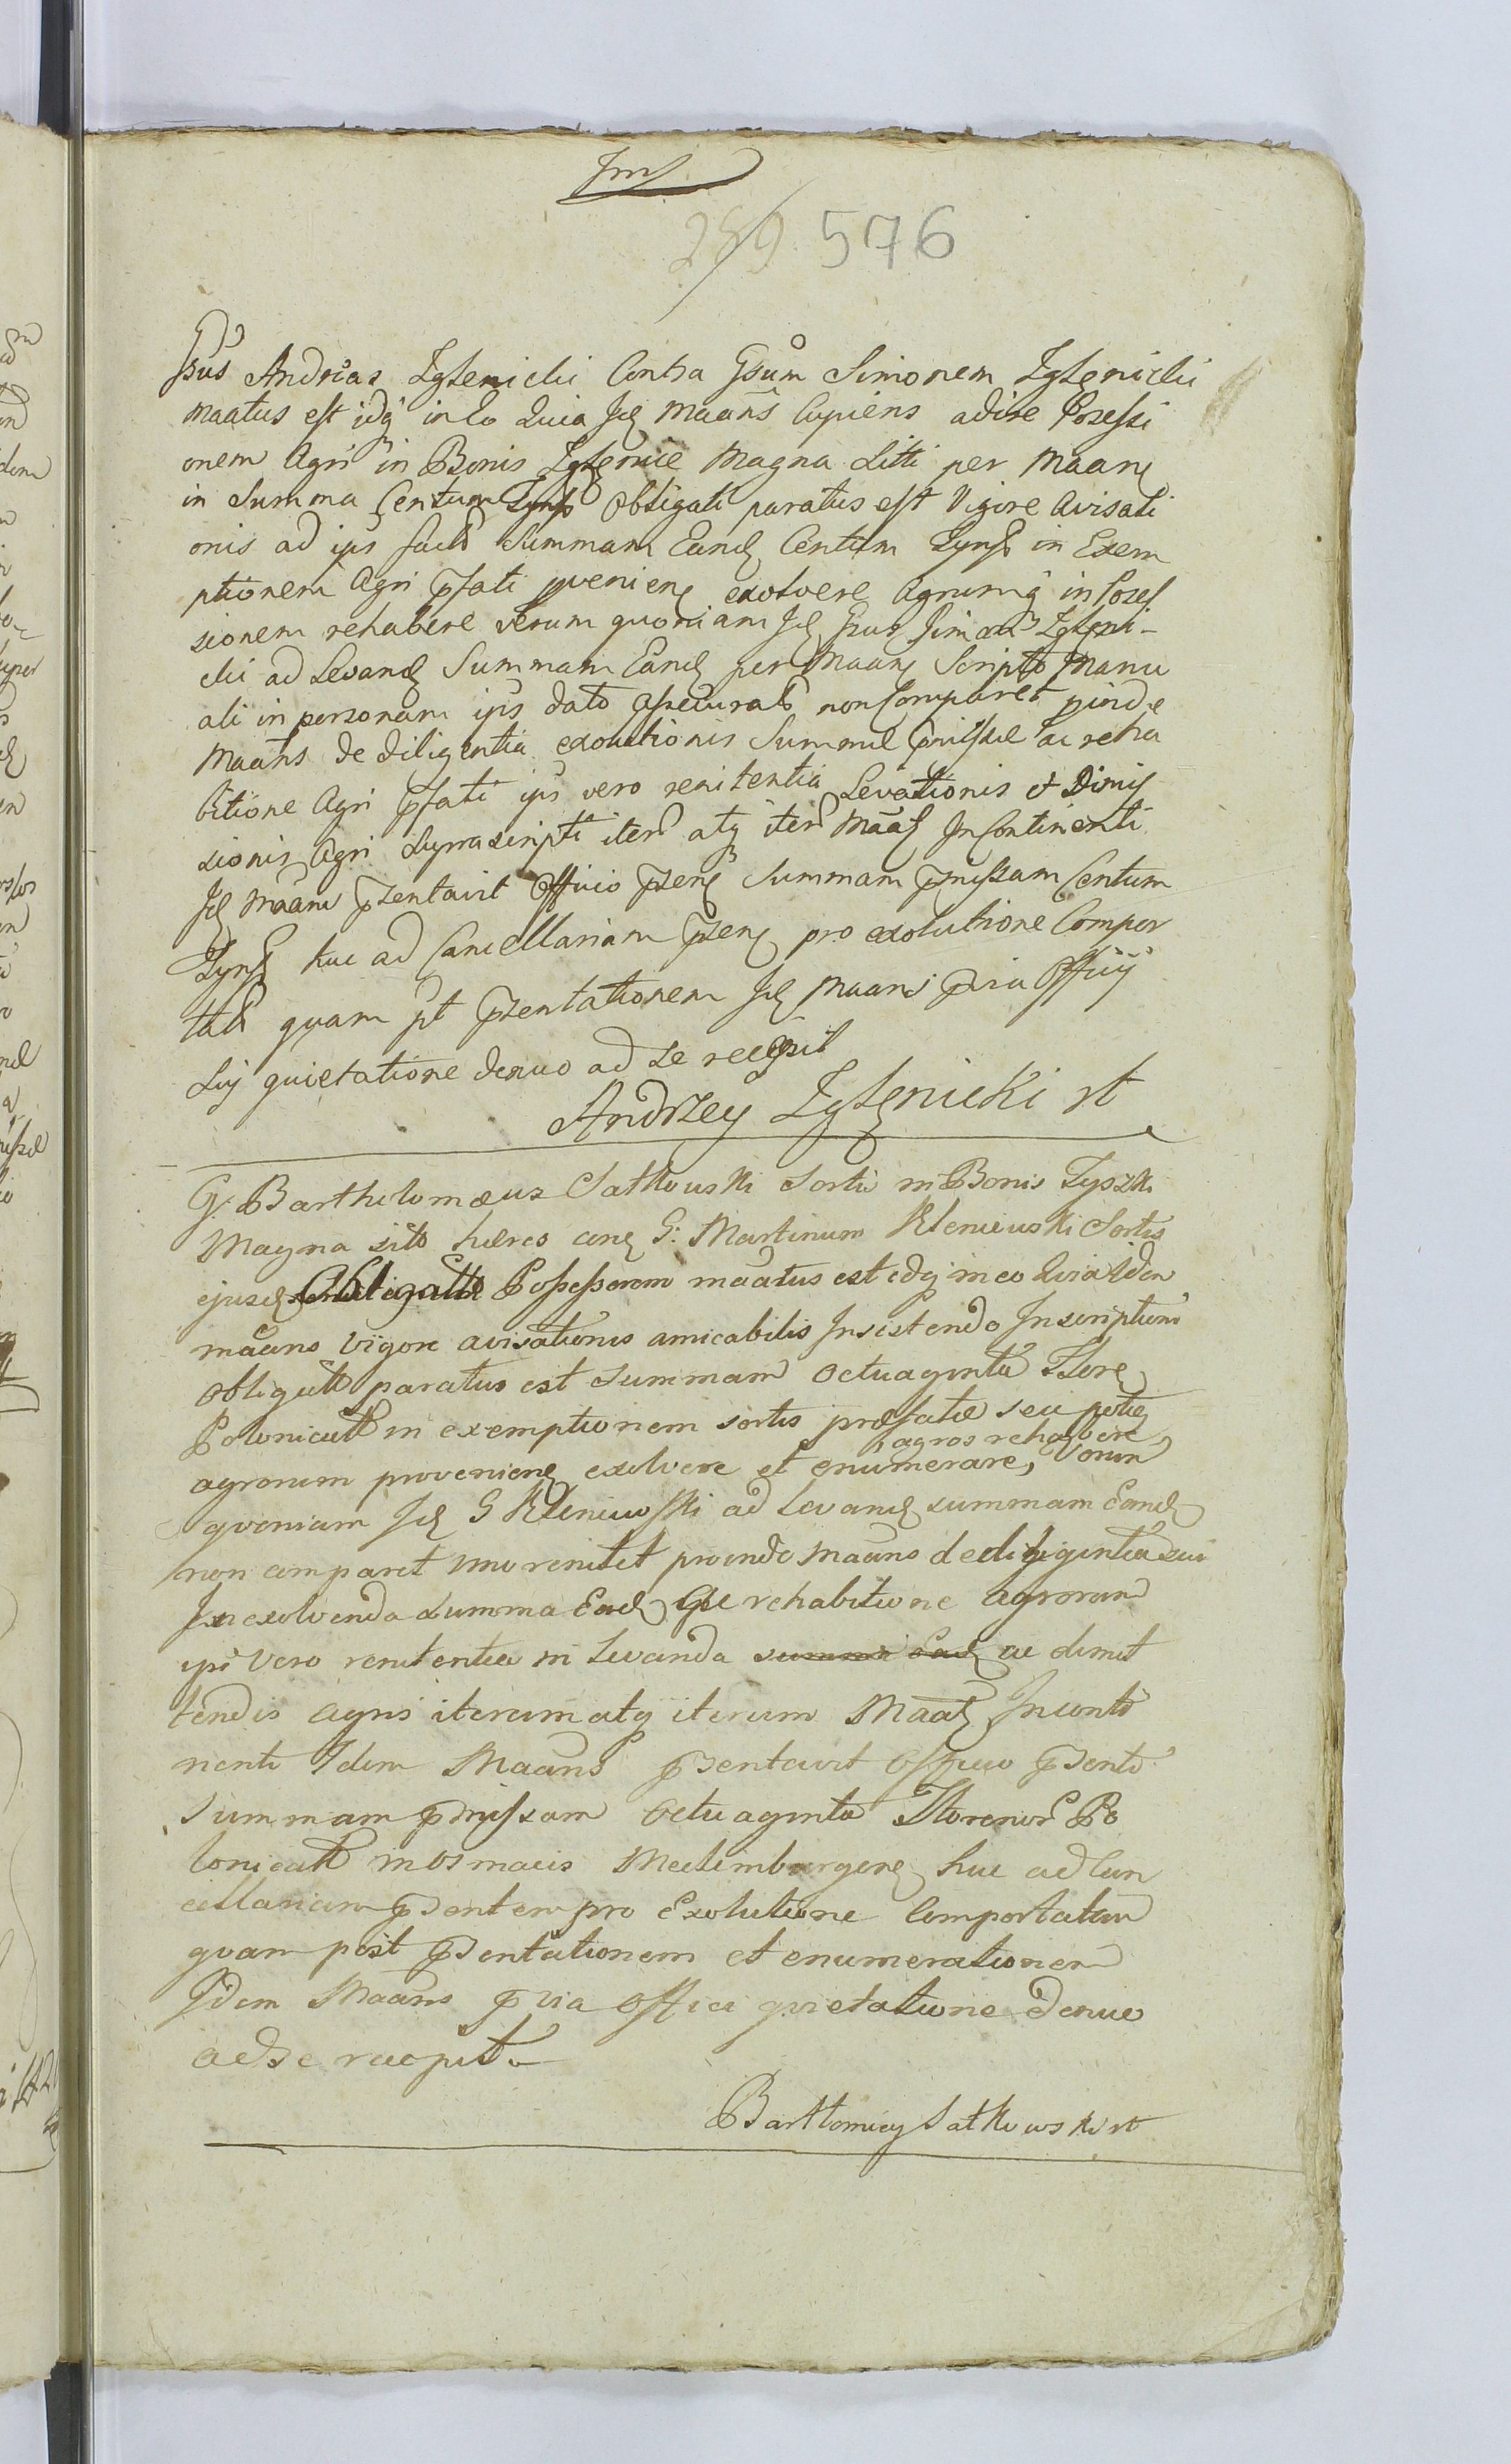 289 576
Gsus Andreas Zglenicki Contra Gsum Simonem Zglenicki
maatus est idq in Eo Quia Jd Maans Cupiens adire Posessi
onem Agri in Bonis Zglenice Magna Sitti per Maan
in Summa Centum Tynf Obligati paratus est Vigore Avisati
onis ad ips facta Summam Eand Centum Tynf in Exem
ptionem Agri pfati pvenien exolvere Agrumq in Poses
sionem rehabere Verum quoniam Jd Gsus Simon Zgleni-
cki ad Levand Summam Eand per Maan Scripto Manu
ali in personam ips dato assecurat non Comparet pinde
Maans de diligentia exolutionis Summae pmissae ac reha
bitione Agri pfati ips vero renitentia Levationis et Dimis
sionis Agri Suprascripti iter atq iter Maas In Continenti
Jd Maans pzentavit Officio pzen Summam pmissam Centum
Tynf huc ad Cancellariam pzen pro exolutione Compor
tat quam pt pzentationem Jd Maans pvia Officij
Sui quietatione denuo ad se recepit
Andrzey Zglenicki st
G. Bartholomaeus Satkowski Sortis in Bonis Tyszki
Magna sito haeres con G: Martinum Kleniewski Sortis
ejusd Obligatto Possessorem maatus est idq in eo Quia Idem
maans vigore avisationis amicabilis Insistendo Inscriptioni
obligatt paratus est summam octuaginta Flore
Polonicalt in exemptionem sortis praefatae seu potio
agros rehabere
agrorum provenien exolvere et enumerare, Verum
quoniam Jd G Kleniewski ad levand summam Eand
non comparet imo renitet proinde Maans de diligentia sui
In exolvenda summa Ead que rehabitione agrorum
ipi vero renitentia in levanda summa Ead ac dimit
tendis agris iterum atq iterum Maas Inconti
nenti Idem Maans pzentavit Officio pzenti
Summam pmissam octuaginta Florenor Po
lonicalt in osmacis Meclimburgen huc ad Can
cellariam pzentem pro Exolutione Comportatam
quam post pzentationem et enumerationem
Idem Maans pvia Offici quietatione denuo
ad se recepit
Bartlomiey Satkowski st